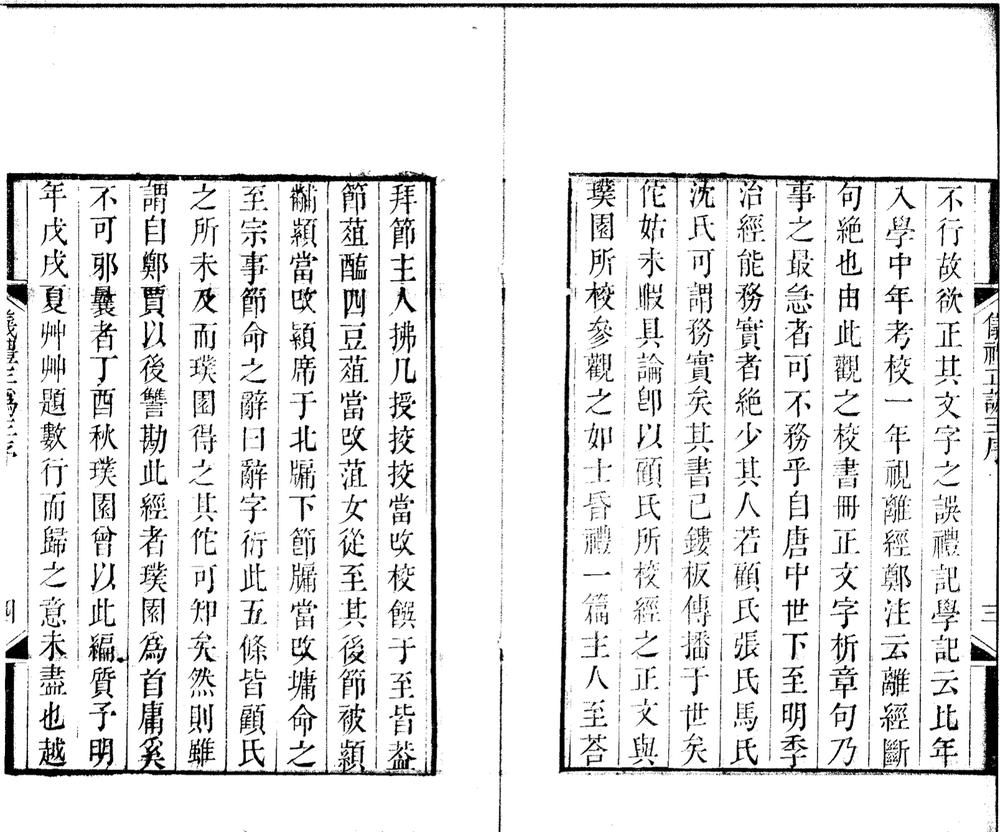 不行故欲正其文字之誤禮記學記云比年
入學中年考校一年視離經鄭注云離經斷
句絶也由此觀之校書冊正文字析章句乃
事之最急者可不務乎自唐中世下至明季
治經能務實者絶少其人若顧氏張氏馬氏
沈氏可謂務實矣其書已鏤板傳播于世矣
佗姑未暇具論卽以顧氏所校經之正文與
璞園所校參觀之如士昏禮一篇主人至荅
拜節主人拂几授挍挍當改校饌于至皆葢
節葅醢四豆葅當改菹女從至其後節被纇
黼纇當改穎席于北牖下節牖當改墉命之
至宗事節命之辭曰辭字衍此五條皆顧氏
之所未及而璞園得之其佗可知矣然則雖
謂自鄭賈以後讐勘此經者璞園爲首庸奚
不可邪曩者丁酉秋璞園曾以此編質予明
年戊戌夏艸艸題數行而歸之意未盡也越
三
四